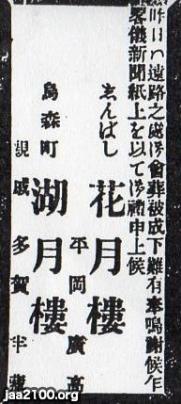 昨日ハ遠路之處御會葬被成下難有奉鳴謝候乍
畧儀新聞紙上を以て御禮申上候
志んばし
花月樓
平岡廣高
烏森町
湖月樓
親戚多賀
jaa2100.org